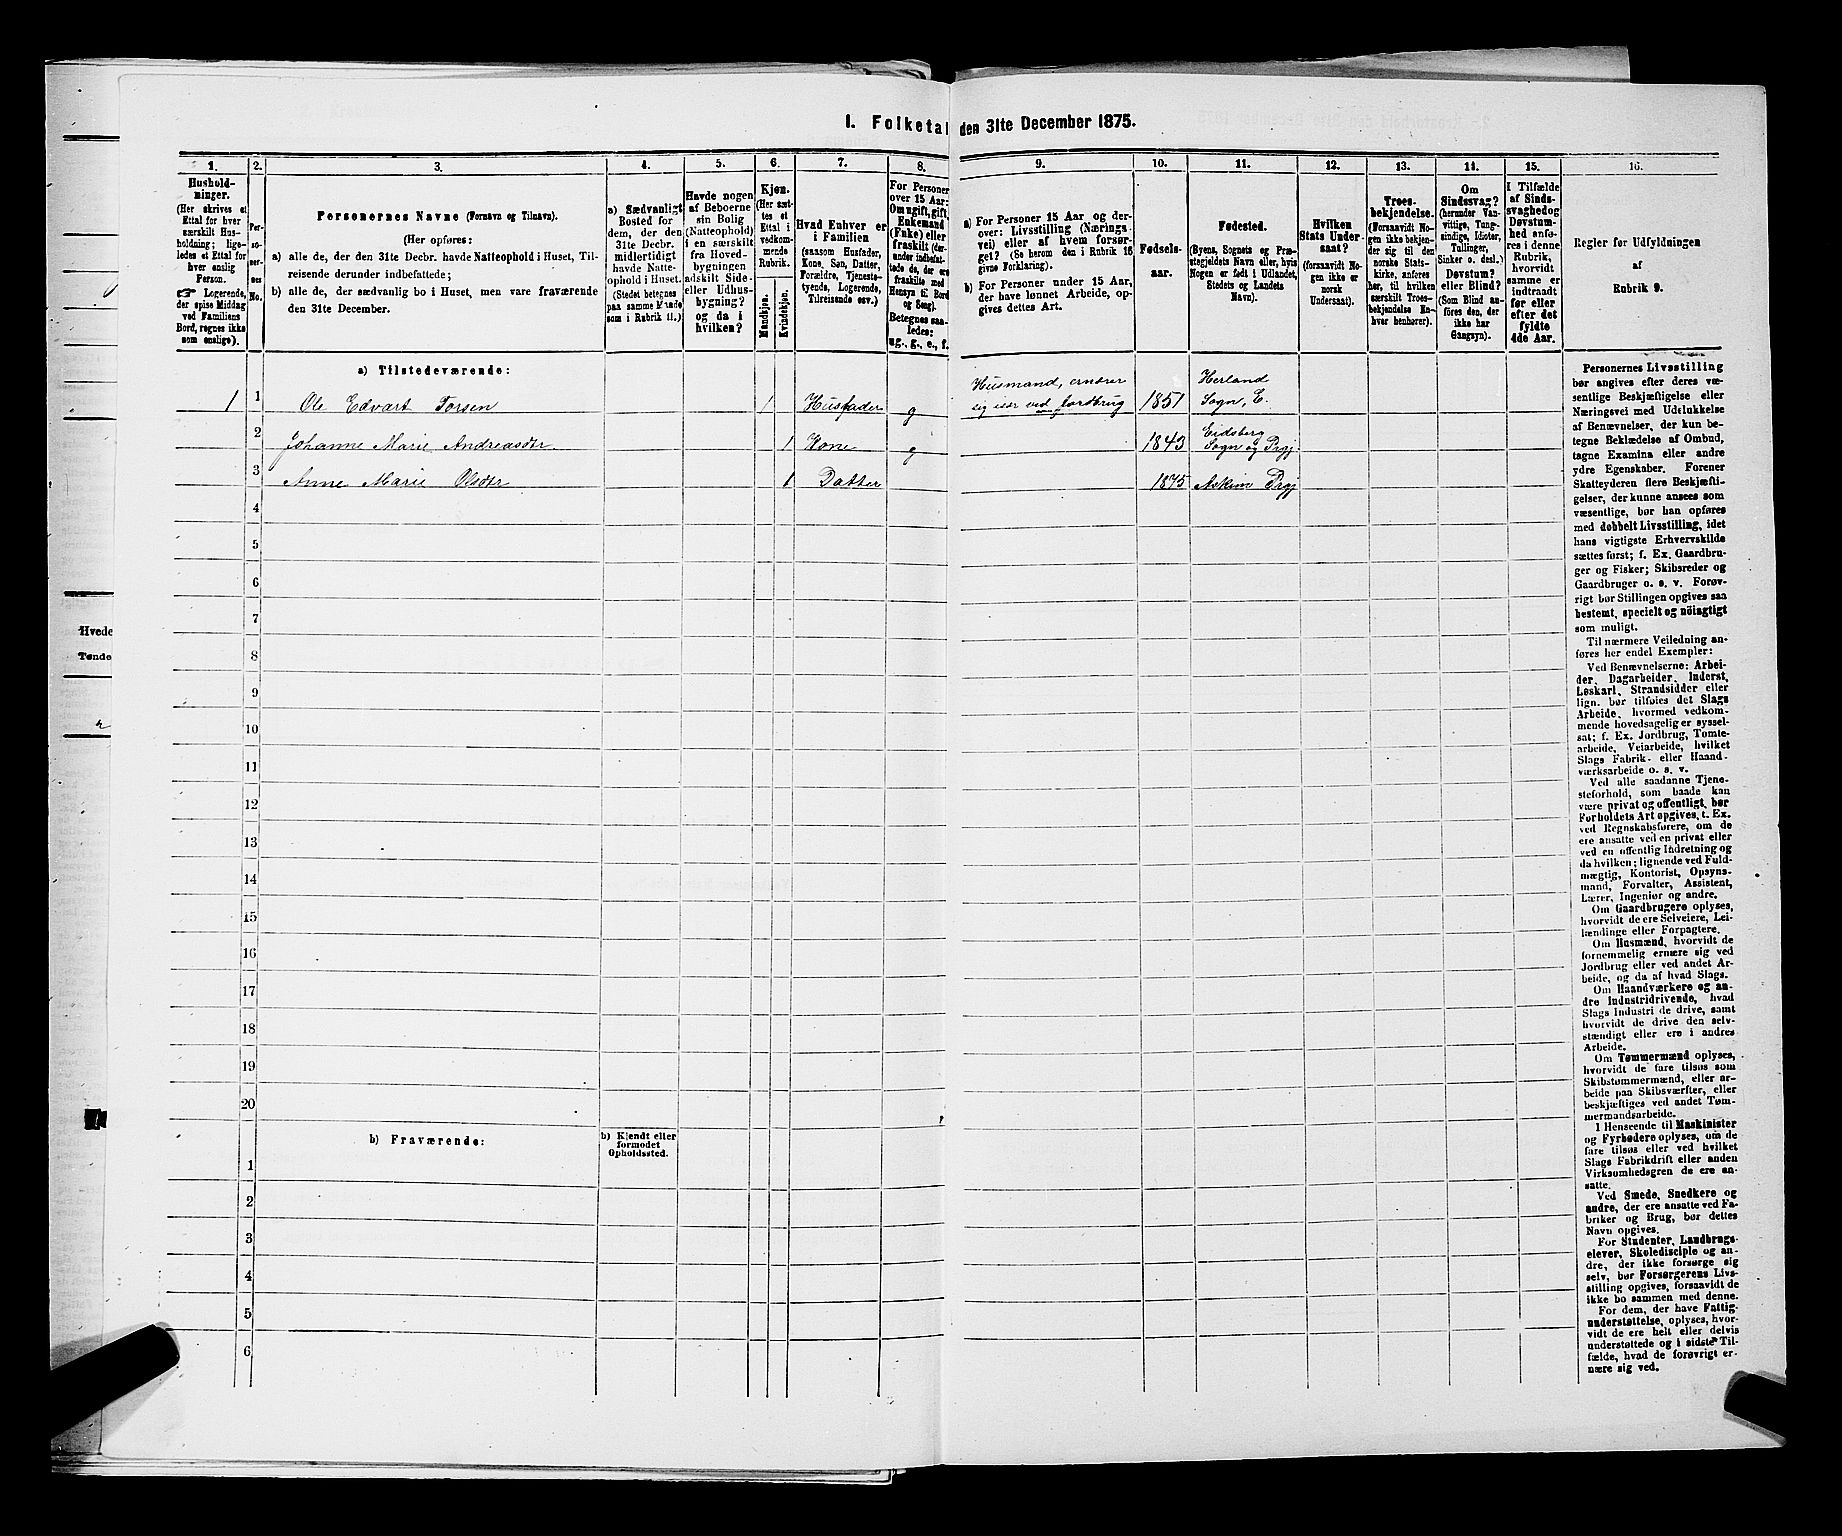 I. Folketal den 31te December 1875.
1. 2. 3. 4. 5. 6. 7. 8. 9. 10. 11. 12. 13. 14. 15. 16.
Husholdninger.
(Her skrives et
Ettal for hver
særskilt Husholdning; ligeledes et Ettal for
hver enslig
Person.
☞ Logerende,
der spise Middag
ved Familiens
Bord, regnes ikke
som enslige).
Personernes No.
Personernes Navne (Fornavn og Tilnavn).
(Her opføres:
a) alle de, der den 31te Decbr. havde Natteophold i Huset, Tilreisende derunder indbefattede;
b) alle de, der sædvanlig bo i Huset, men vare fraværende
den 31te December.
a) Sædvanligt
Bosted for
dem, der den
31te Decbr.
midlertidigt
havde Natteophold i Huset.
(Stedet betegnes
paa samme Maade
som i Rubrik 11.)
Havde nogen
af Beboerne
sin Bolig
(Natteophold)
i en særskilt
fra Hovedbygningen
adskilt Side-
eller Udhusbygning?
og da i
hvilken?
Kjøn.
(Her sættes et
Ettal i
vedkommende
Rubrik.
Mandkjøn.
Kvindekjøn.
Hvad Enhver er
i Familien
(saasom Husfader,
Kone, Søn, Datter,
Forældre, Tjenestetyende, Logerende,
Tilreisende osv.)
For Personer
over 15 Aar:
Om ugift, gift,
Enkemand
(Enke) eller
fraskilt (derunder indbefattede de, der ere
fraskilte med
Hensyn til Bord
og Seng).
Betegnes saaledes:
ug., g., e., f.
a) For Personer 15 Aar og derover: Livsstilling (Næringsvei) eller af hvem forsørget? (Se herom den i Rubrik 16
givne Forklaring).
b) For Personer under 15 Aar,
der have lønnet Arbeide, opgives dettes Art.
Fødselsaar.
Fødested.
(Byens, Sognets og Præstegjeldets Navn eller, hvis
Nogen er født i Udlandet,
Stedets og Landets
Navn).
Hvilken
Stats Undersaat?
(forsaavidt Nogen ikke er
norsk
Undersaat).
Troesbekjendelse.
(Forsaavidt Nogen ikke bekjender sig til den
norske Statskirke, anføres
her, til hvilken
særskilt Troesbekjendelse Enhver henhører).
Om
Sindssvag?
(herunder Vanvittige, Tungsindige, Idioter,
Tullinger,
Sinker o. desl.)
Døvstum?
eller Blind?
(Som Blind anføres den, der
ikke har
Gangsyn).
I Tilfælde
af Sindssvaghed og
Døvstumhed anføres i denne
Rubrik,
hvorvidt
samme er
indtraadt
før eller
efter det
fyldte
4de Aar.
Regler før Udfyldningen
af
Rubrik 9.
a) Tilstedeværende:
1 1 Ole Edvart Torsen 1 Husfader g Husmand, ernærer sig især ved Jordbrug 1851 Herland Sogn, E.
2 Johanne Marie Andreasdtr 1 Kone g 1843 Eidsberg Sogn og Prgj
3 Anne Marie Olsdtr 1 Datter 1875 Askim Prgj
4
5
6
7
8
9
10
11
12
13
14
15
16
17
18
19
20
b) Fraværende:
b) Kjendt eller
formodet
Opholdssted.
1
2
3
4
5
6
Personernes Livsstilling
bør angives efter deres væsentlige Beskjæftigelse eller
Næringsvei med Udelukkelse
af Benævnelser, der kun betegne Beklædelse af Ombud,
tagne Examina eller andre
ydre Egenskaber. Forener
Skatteyderen flere Beskjæftigelser, der kunne ansees som
væsentlige, bør han opføres
med dobbelt Livsstilling, idet
hans vigtigste Erhvervskilde
sættes først; f. Ex. Gaardbruger og Fisker; Skibsreder og
Gaardbruger o. s. v. Forøvrigt bør Stillingen opgives saa
bestemt, specielt og nöiagtigt
som muligt.
Til nærmere Veiledning anføres her endel Exempler:
Ved Benævnelserne: Arbeider, Dagarbeider, Inderst,
Løskarl, Strandsidder eller
lign. bør tilføies det Slags
Arbeide, hvormed vedkommende hovedsagelig er sysselsat; f. Ex. Jordbrug, Tomtearbeide, Veiarbeide, hvilket
Slags Fabrik- eller Haandværksarbeide o. s. v.
Ved alle saadanne Tjenesteforhold, som baade kan
være privat og offentligt, bør
Forholdets Art opgives, t. Ex.
ved Regnskabsførere, om de
ere ansatte ved en privat eller
ved en offentlig Indretning og
da hvilken; lignende ved Fuldmægtig, Kontorist, Opsynsmand, Forvalter, Assistent,
Lærer, Ingeniør og andre.
Om Gaardbrugere oplyses,
hvorvidt de ere Selveiere, Leilændinge eller Forpagtere.
Om Husmænd, hvorvidt de
fornemmelig ernære sig ved
Jordbrug eller ved andet Arbeide, og da af hvad Slags.
Om Haandværkere og andre Industridrivende, hvad
Slags Industri de drive, samt
hvorvidt de drive den selvstændigt eller ere i andres
Arbeide.
Om Tømmermænd oplyses,
hvorvidt de fare tilsøs som
Skibstømmermænd, eller arbeide paa Skibsværfter, eller
beskjæftiges ved andet Tømmermandsarbeide.
I Henseende til Maskinister
og Fyrbødere oplyses, om de
fare tilsøs eller ved hvilket
Slags Fabrikdrift eller anden
Virksomhedsgren de ere ansatte.
Ved Smede, Snedkere og
andre, der ere ansatte ved Fabriker og Brug, bør dettes
Navn opgives.
For Studenter, Landbrugselever, Skoledisciple og andre, der ikke forsørge sig
selv, bør Forsørgerens Livsstilling opgives, forsaavidt de
ikke bo sammen med denne.
For dem, der have Fattigunderstøttelse, oplyses, hvorvidt de ere helt eller delvis
understøttede og i sidste Tilfælde, hvad de forøvrigt ernære sig ved.
Hvede
Tønde